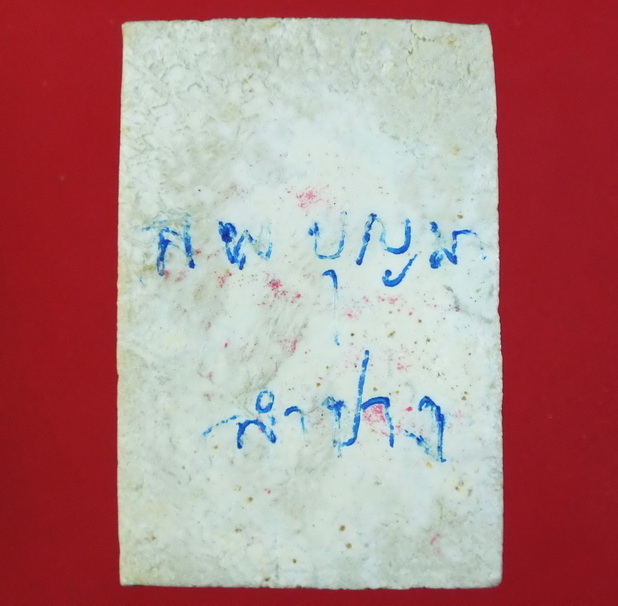 ส พ บุญม
ลำปาง